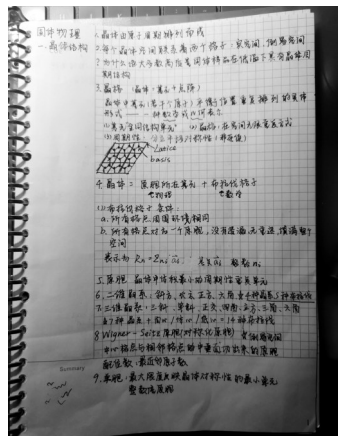 固体物理
一.晶体结构
1.晶体由原子周期排列而成
2.每个晶体空间联系着两个格子：实空间，倒易空间
?为什么绝大多数高温无固体样品在低温下具有晶体周期结构
3.晶格（晶体：基元+点阵）
晶体中基元（基于六原子）平衡位置重复排列的具体
形式
(1)基元：空间结构单元
(2)晶格：在空间无限重复方式
(3)周期性
Lattice
basis
4.晶体 = 原胞所在基元 + 布拉伐格子
物理 数学
(1)布拉伐格子条件：
a.所有格点周围环境相同
b.所有格点对应一个原胞，没有遗漏，无重迭，填满整个
空间
表示为 Rn=Σniai
5.原胞 晶体中体积最小的周期性重复单元
6.二维晶系：斜方、长方、正方、六角 4种晶系，5种布拉伐
7.三维晶系：三斜、单斜、正交、四角、立方、三角、六角
7种晶系 14种布拉伐
8 Wigner-Seitz原胞(对称化原胞)
中心格点与相邻格点的中垂面切出来的原胞
配位数：最近的原子数
9.单胞：最大限度反映晶体对称性的最小单元
整数倍原胞
Summary